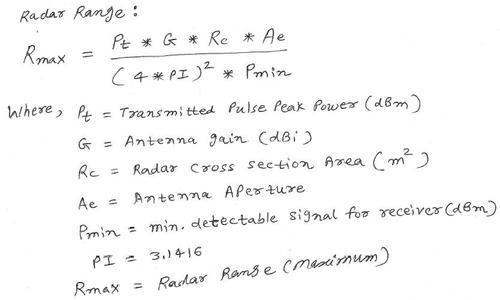 Radar Range:
Rmax = Pt * G * Rc * Ae
(4*PI)² * Pmin
Where, Pt = Transmitted Pulse Peak Power (dBm)
G = Antenna gain (dBi)
Rc = Radar Cross section Area (m²)
Ae = Antenna Aperture
Pmin = min. detectable signal for receiver (dBm)
PI = 3.1416
Rmax = Radar Range (Maximum)